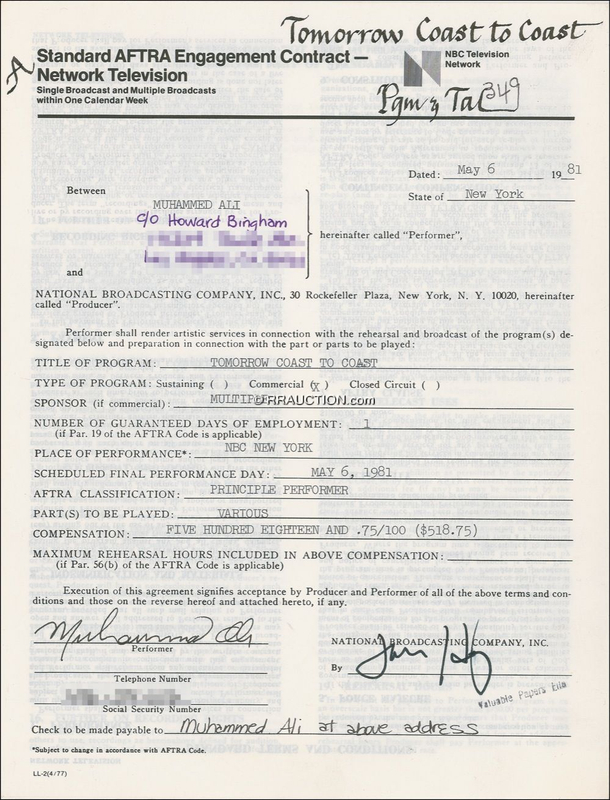 Tomorrow Coast to Coast
Standard AFTRA Engagement Contract—
Network Television
Single Broadcast and Multiple Broadcasts
within One Calendar Week
NBC Television
Network
Pgm & Tal 349
Dated: May 6 1981
State of New York
Between
MUHAMMED ALI
c/o Howard Bingham
hereinafter called "Performer",
and
NATIONAL BROADCASTING COMPANY, INC., 30 Rockefeller Plaza, New York, N. Y. 10020, hereinafter
called "Producer".
Performer shall render artistic services in connection with the rehearsal and broadcast of the program(s) de-
signated below and preparation in connection with the part or parts to be played:
TITLE OF PROGRAM: TOMORROW COAST TO COAST
TYPE OF PROGRAM: Sustaining ( ) Commercial (X) Closed Circuit ( )
SPONSOR (if commercial): MULTIPLE
©RRAUCTION.com
NUMBER OF GUARANTEED DAYS OF EMPLOYMENT: 1
(if Par. 19 of the AFTRA Code is applicable)
PLACE OF PERFORMANCE*: NBC NEW YORK
SCHEDULED FINAL PERFORMANCE DAY: MAY 6, 1981
AFTRA CLASSIFICATION: PRINCIPLE PERFORMER
PART(S) TO BE PLAYED: VARIOUS
COMPENSATION: FIVE HUNDRED EIGHTEEN AND .75/100 ($518.75)
MAXIMUM REHEARSAL HOURS INCLUDED IN ABOVE COMPENSATION:
(if Par. 56(b) of the AFTRA Code is applicable)
Execution of this agreement signifies acceptance by Producer and Performer of all of the above terms and con-
ditions and those on the reverse hereof and attached hereto, if any.
Muhammad Ali
Performer
NATIONAL BROADCASTING COMPANY, INC.
By
Telephone Number
Valuable Papers File
Social Security Number
Check to be made payable to Muhammed Ali at above address
*Subject to change in accordance with AFTRA Code.
LL-2(4/77)